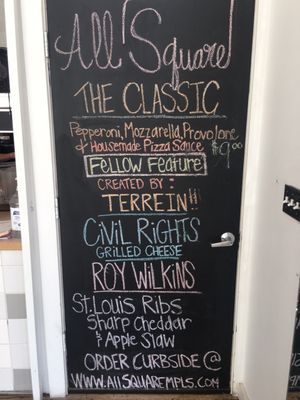 All Square
THE CLASSIC
Pepperoni, Mozzarella, Provolone
& Housemade Pizza Sauce $9.00
Fellow Feature
CREATED BY:
TERREIN
CIVIL RIGHTS
GRILLED CHEESE
ROY WILKINS
St. Louis Ribs
Sharp Cheddar
& Apple Slaw
ORDER CURBSIDE @
WWW.AllSQUAREMPLS.COM